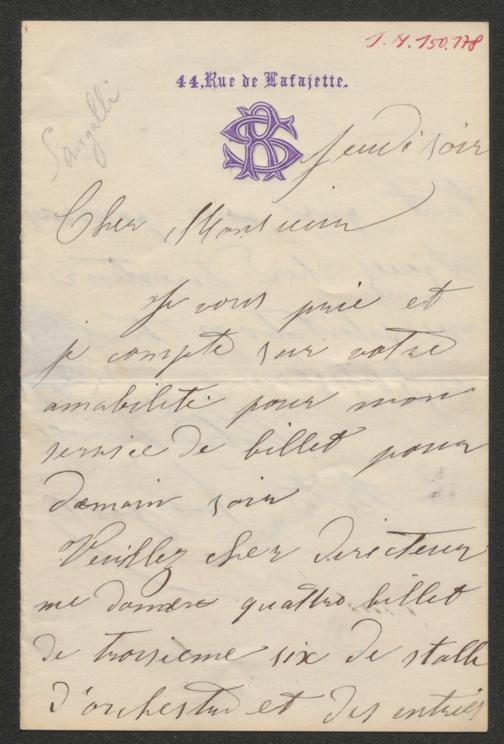 1.4.150.178
44, Rue de Lafajette.
Sangalli
jeudi soir
Cher Monsieur
Je vous prie et
je compte sur votre
amabilité pour mon
service de billet pour
demain soir
Veuillez cher directeur
me donner quattro billet
de troisieme six de stalle
d'orchestre et des entrées